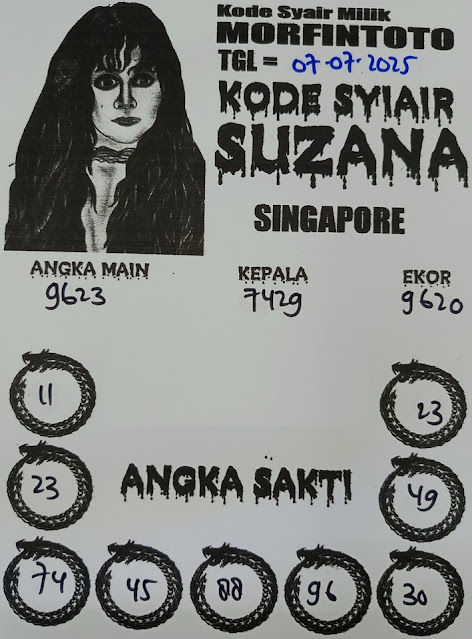 Kode Syair Milik
MORFINTOTO
TGL = 07-07-2025
KODE SYIAIR
SUZANA
SINGAPORE
ANGKA MAIN
9623
KEPALA
7429
EKOR
9620
11
23
23
ANGKA SAKTI
49
74
45
88
96
30